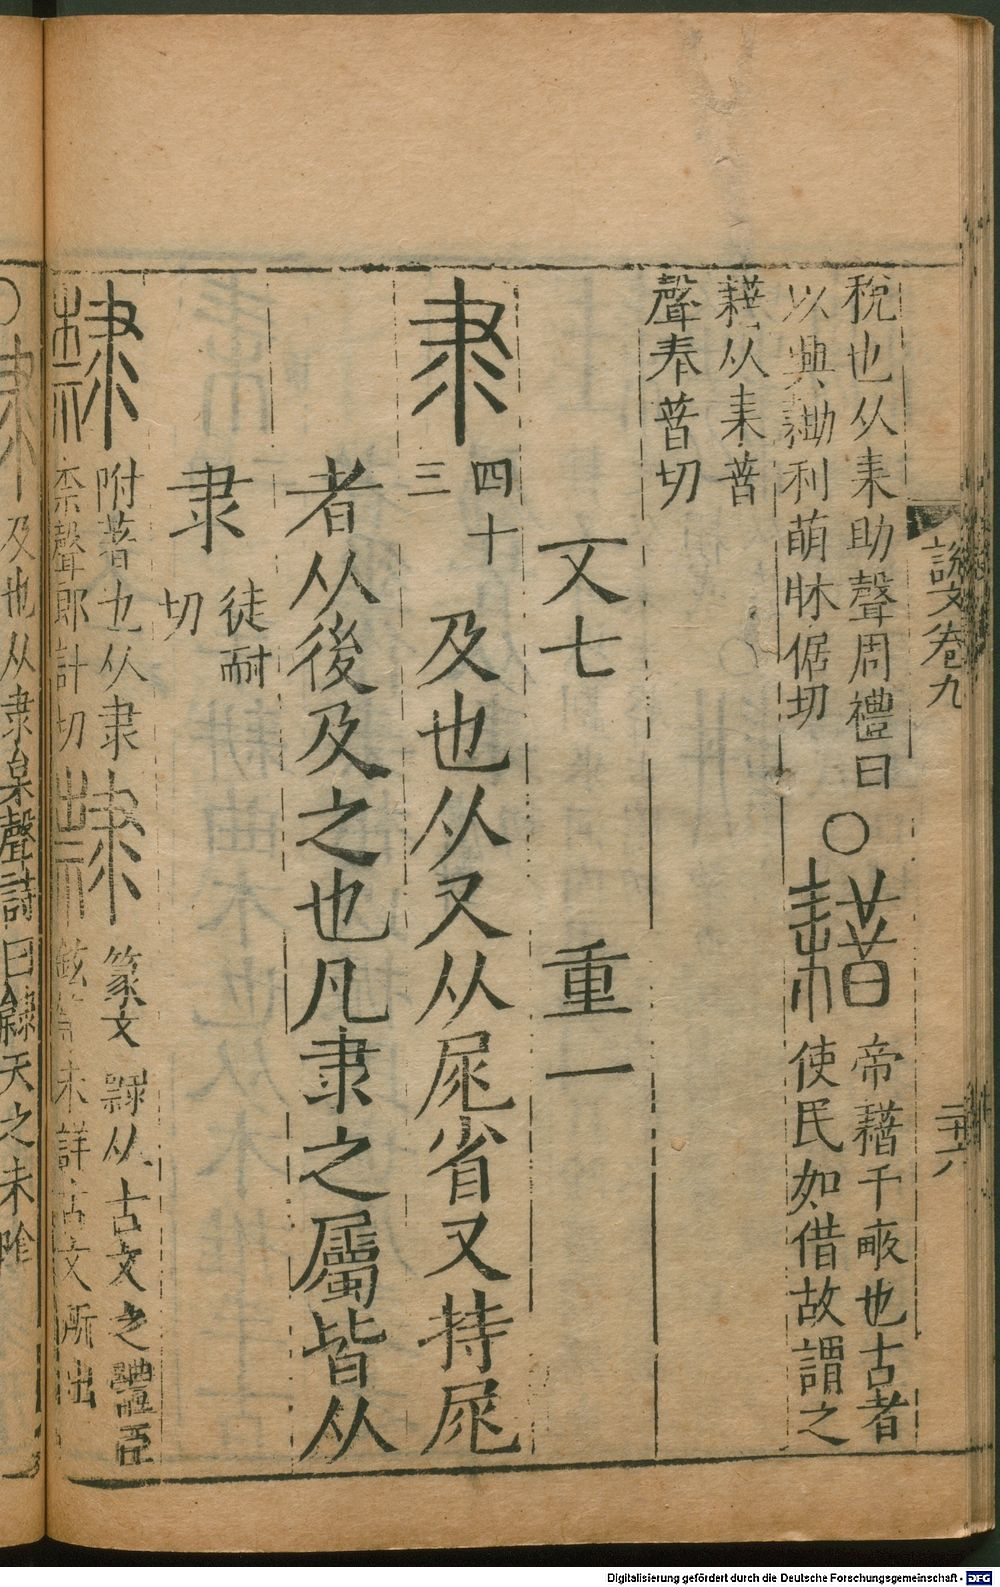 說文卷九
二十六
稅也从耒助聲周禮曰
以興耡利萌牀倨切
○耤帝耤千畞也古者
使民如借故謂之
耤从耒㫺
聲秦㫺切
文七 重一
隶四十
三
及也从又从尾省又持尾
者从後及之也凡隶之屬皆从
隶徒耐
切
隸附著也从隶
柰聲郎計切
篆文隸从古文之體臣
鉉等未詳古文所出
○及也从隶枲聲詩曰隸天之未陰
Digitalisierung gefördert durch die Deutsche Forschungsgemeinschaft - DFG